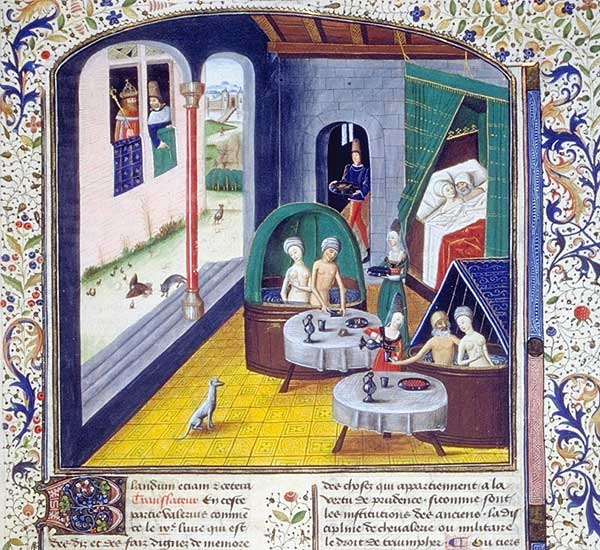 landum etiam et cetera
Translateur En ceste
partie valerius comme
ce le liure qui est
des diz et des faiz dignes de memore
des choses qui apartiennent a la
vertu de prudence sicomme sont
les institutions des anciens . la dis
cipline de cheualerie ou militaire
le droit de triumpher ¶ Ou tiers